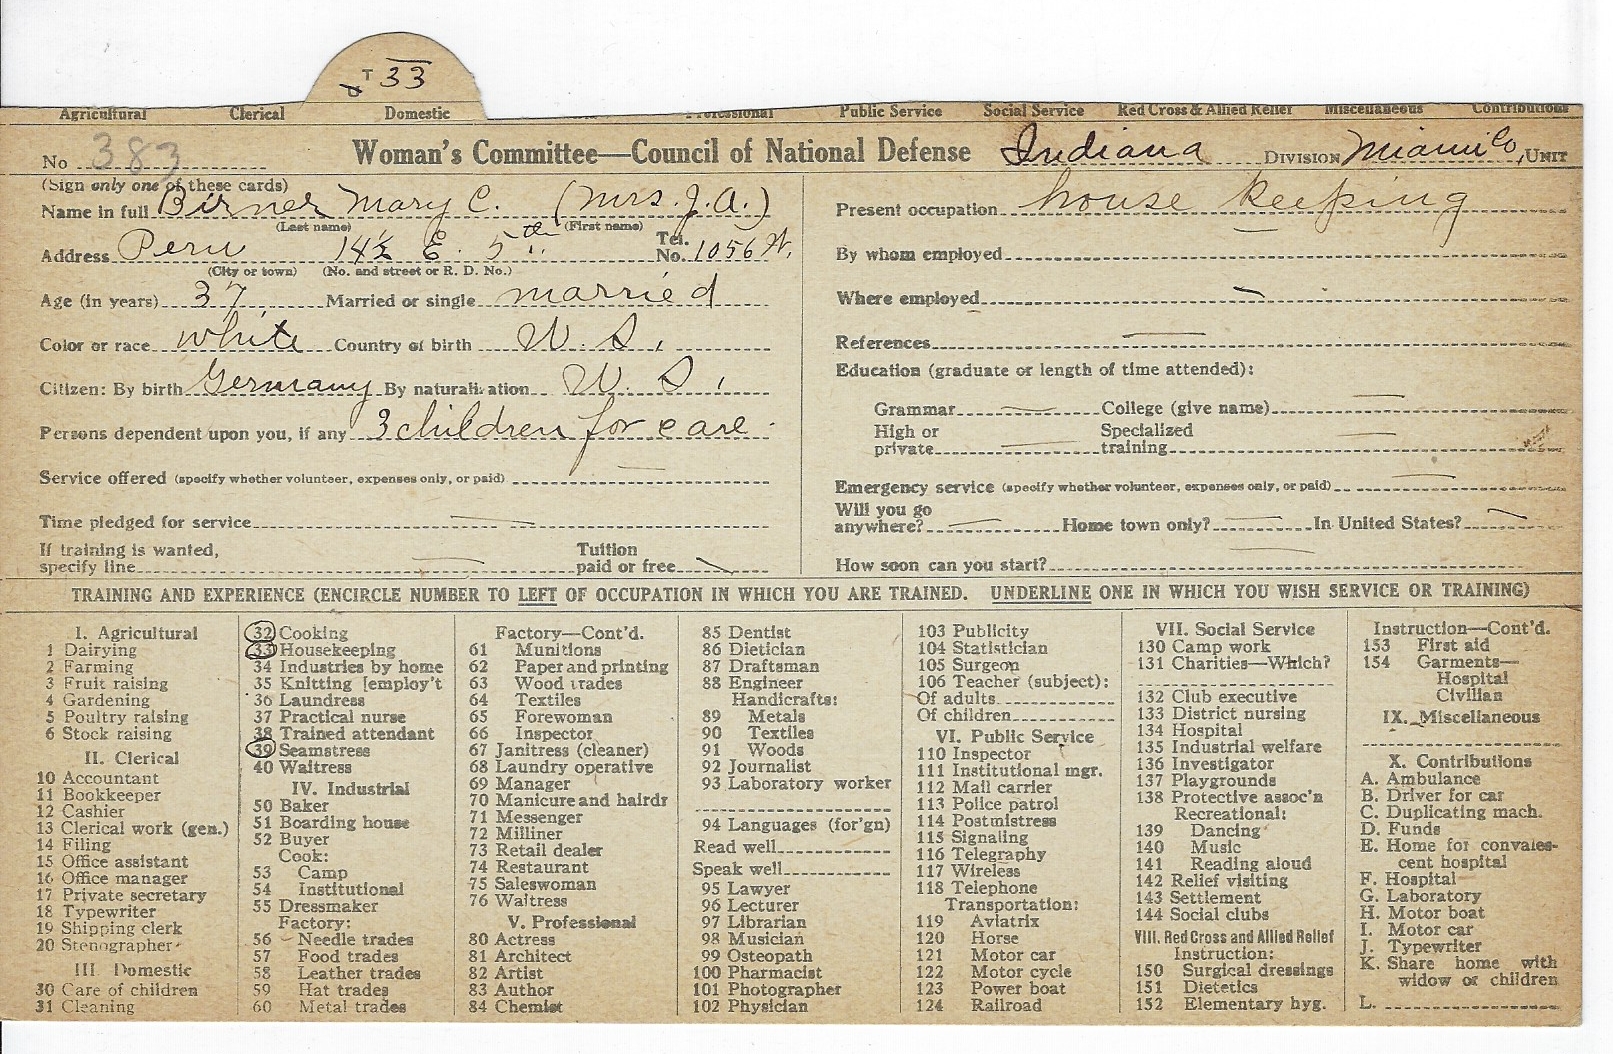 T 33
Agricultural Clerical Domestic Professional Public Service Social Service Red Cross & Allied Relief Miscellaneous Contributions
No 383 Woman's Committee—Council of National Defense Indiana DIVISION Miami Co, UNIT
(Sign only one of these cards)
Name in full Birner Mary C. (Mrs. J. A.)
(Last name) (First name)
Address Peru 14½ E. 5th Tel. No. 1056
(City or town) (No. and street or R. D. No.)
Age (in years) 37 Married or single married
Color or race white Country of birth U. S.
Citizen: By birth Germany By naturalization U. S.
Persons dependent upon you, if any 3 children for care
Service offered (specify whether volunteer, expenses only, or paid) —
Time pledged for service —
If training is wanted, specify line — Tuition paid or free —
Present occupation house keeping
By whom employed —
Where employed —
References —
Education (graduate or length of time attended):
Grammar — College (give name) —
High or private — Specialized training —
Emergency service (specify whether volunteer, expenses only, or paid) —
Will you go anywhere? — Home town only? — In United States? —
How soon can you start? —
TRAINING AND EXPERIENCE (ENCIRCLE NUMBER TO LEFT OF OCCUPATION IN WHICH YOU ARE TRAINED. UNDERLINE ONE IN WHICH YOU WISH SERVICE OR TRAINING)
I. Agricultural
1 Dairying
2 Farming
3 Fruit raising
4 Gardening
5 Poultry raising
6 Stock raising
II. Clerical
10 Accountant
11 Bookkeeper
12 Cashier
13 Clerical work (gen.)
14 Filing
15 Office assistant
16 Office manager
17 Private secretary
18 Typewriter
19 Shipping clerk
20 Stenographer
III. Domestic
30 Care of children
31 Cleaning
32 Cooking
33 Housekeeping
34 Industries by home
35 Knitting [employ't
36 Laundress
37 Practical nurse
38 Trained attendant
39 Seamstress
40 Waitress
IV. Industrial
50 Baker
51 Boarding house
52 Buyer
Cook:
53 Camp
54 Institutional
55 Dressmaker
Factory:
56 Needle trades
57 Food trades
58 Leather trades
59 Hat trades
60 Metal trades
Factory—Cont'd.
61 Munitions
62 Paper and printing
63 Wood trades
64 Textiles
65 Forewoman
66 Inspector
67 Janitress (cleaner)
68 Laundry operative
69 Manager
70 Manicure and hairdr
71 Messenger
72 Milliner
73 Retail dealer
74 Restaurant
75 Saleswoman
76 Waitress
V. Professional
80 Actress
81 Architect
82 Artist
83 Author
84 Chemist
85 Dentist
86 Dietician
87 Draftsman
88 Engineer
Handicrafts:
89 Metals
90 Textiles
91 Woods
92 Journalist
93 Laboratory worker
94 Languages (for'gn)
Read well
Speak well
95 Lawyer
96 Lecturer
97 Librarian
98 Musician
99 Osteopath
100 Pharmacist
101 Photographer
102 Physician
103 Publicity
104 Statistician
105 Surgeon
106 Teacher (subject):
Of adults
Of children
VI. Public Service
110 Inspector
111 Institutional mgr.
112 Mail carrier
113 Police patrol
114 Postmistress
115 Signaling
116 Telegraphy
117 Wireless
118 Telephone
Transportation:
119 Aviatrix
120 Horse
121 Motor car
122 Motor cycle
123 Power boat
124 Railroad
VII. Social Service
130 Camp work
131 Charities—Which?
132 Club executive
133 District nursing
134 Hospital
135 Industrial welfare
136 Investigator
137 Playgrounds
138 Protective assoc'n
Recreational:
139 Dancing
140 Music
141 Reading aloud
142 Relief visiting
143 Settlement
144 Social clubs
VIII. Red Cross and Allied Relief
Instruction:
150 Surgical dressings
151 Dietetics
152 Elementary hyg.
Instruction—Cont'd.
153 First aid
154 Garments—
Hospital
Civilian
IX. Miscellaneous
X. Contributions
A. Ambulance
B. Driver for car
C. Duplicating mach.
D. Funds
E. Home for convales-
cent hospital
F. Hospital
G. Laboratory
H. Motor boat
I. Motor car
J. Typewriter
K. Share home with
widow or children
L.